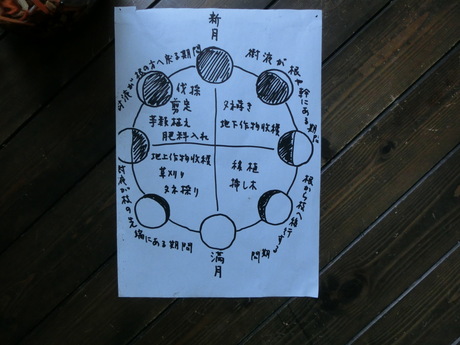 新月
樹液が根や幹にある期間
根から枝へ移行する
期間
満月
樹液が枝の先
端にある期間
樹液が根の方へ来る期間
伐採
剪定
手数植え
肥料入れ
タネ蒔き
地下作物収穫
地上作物収穫
草刈り
タネ採り
移植
挿し木